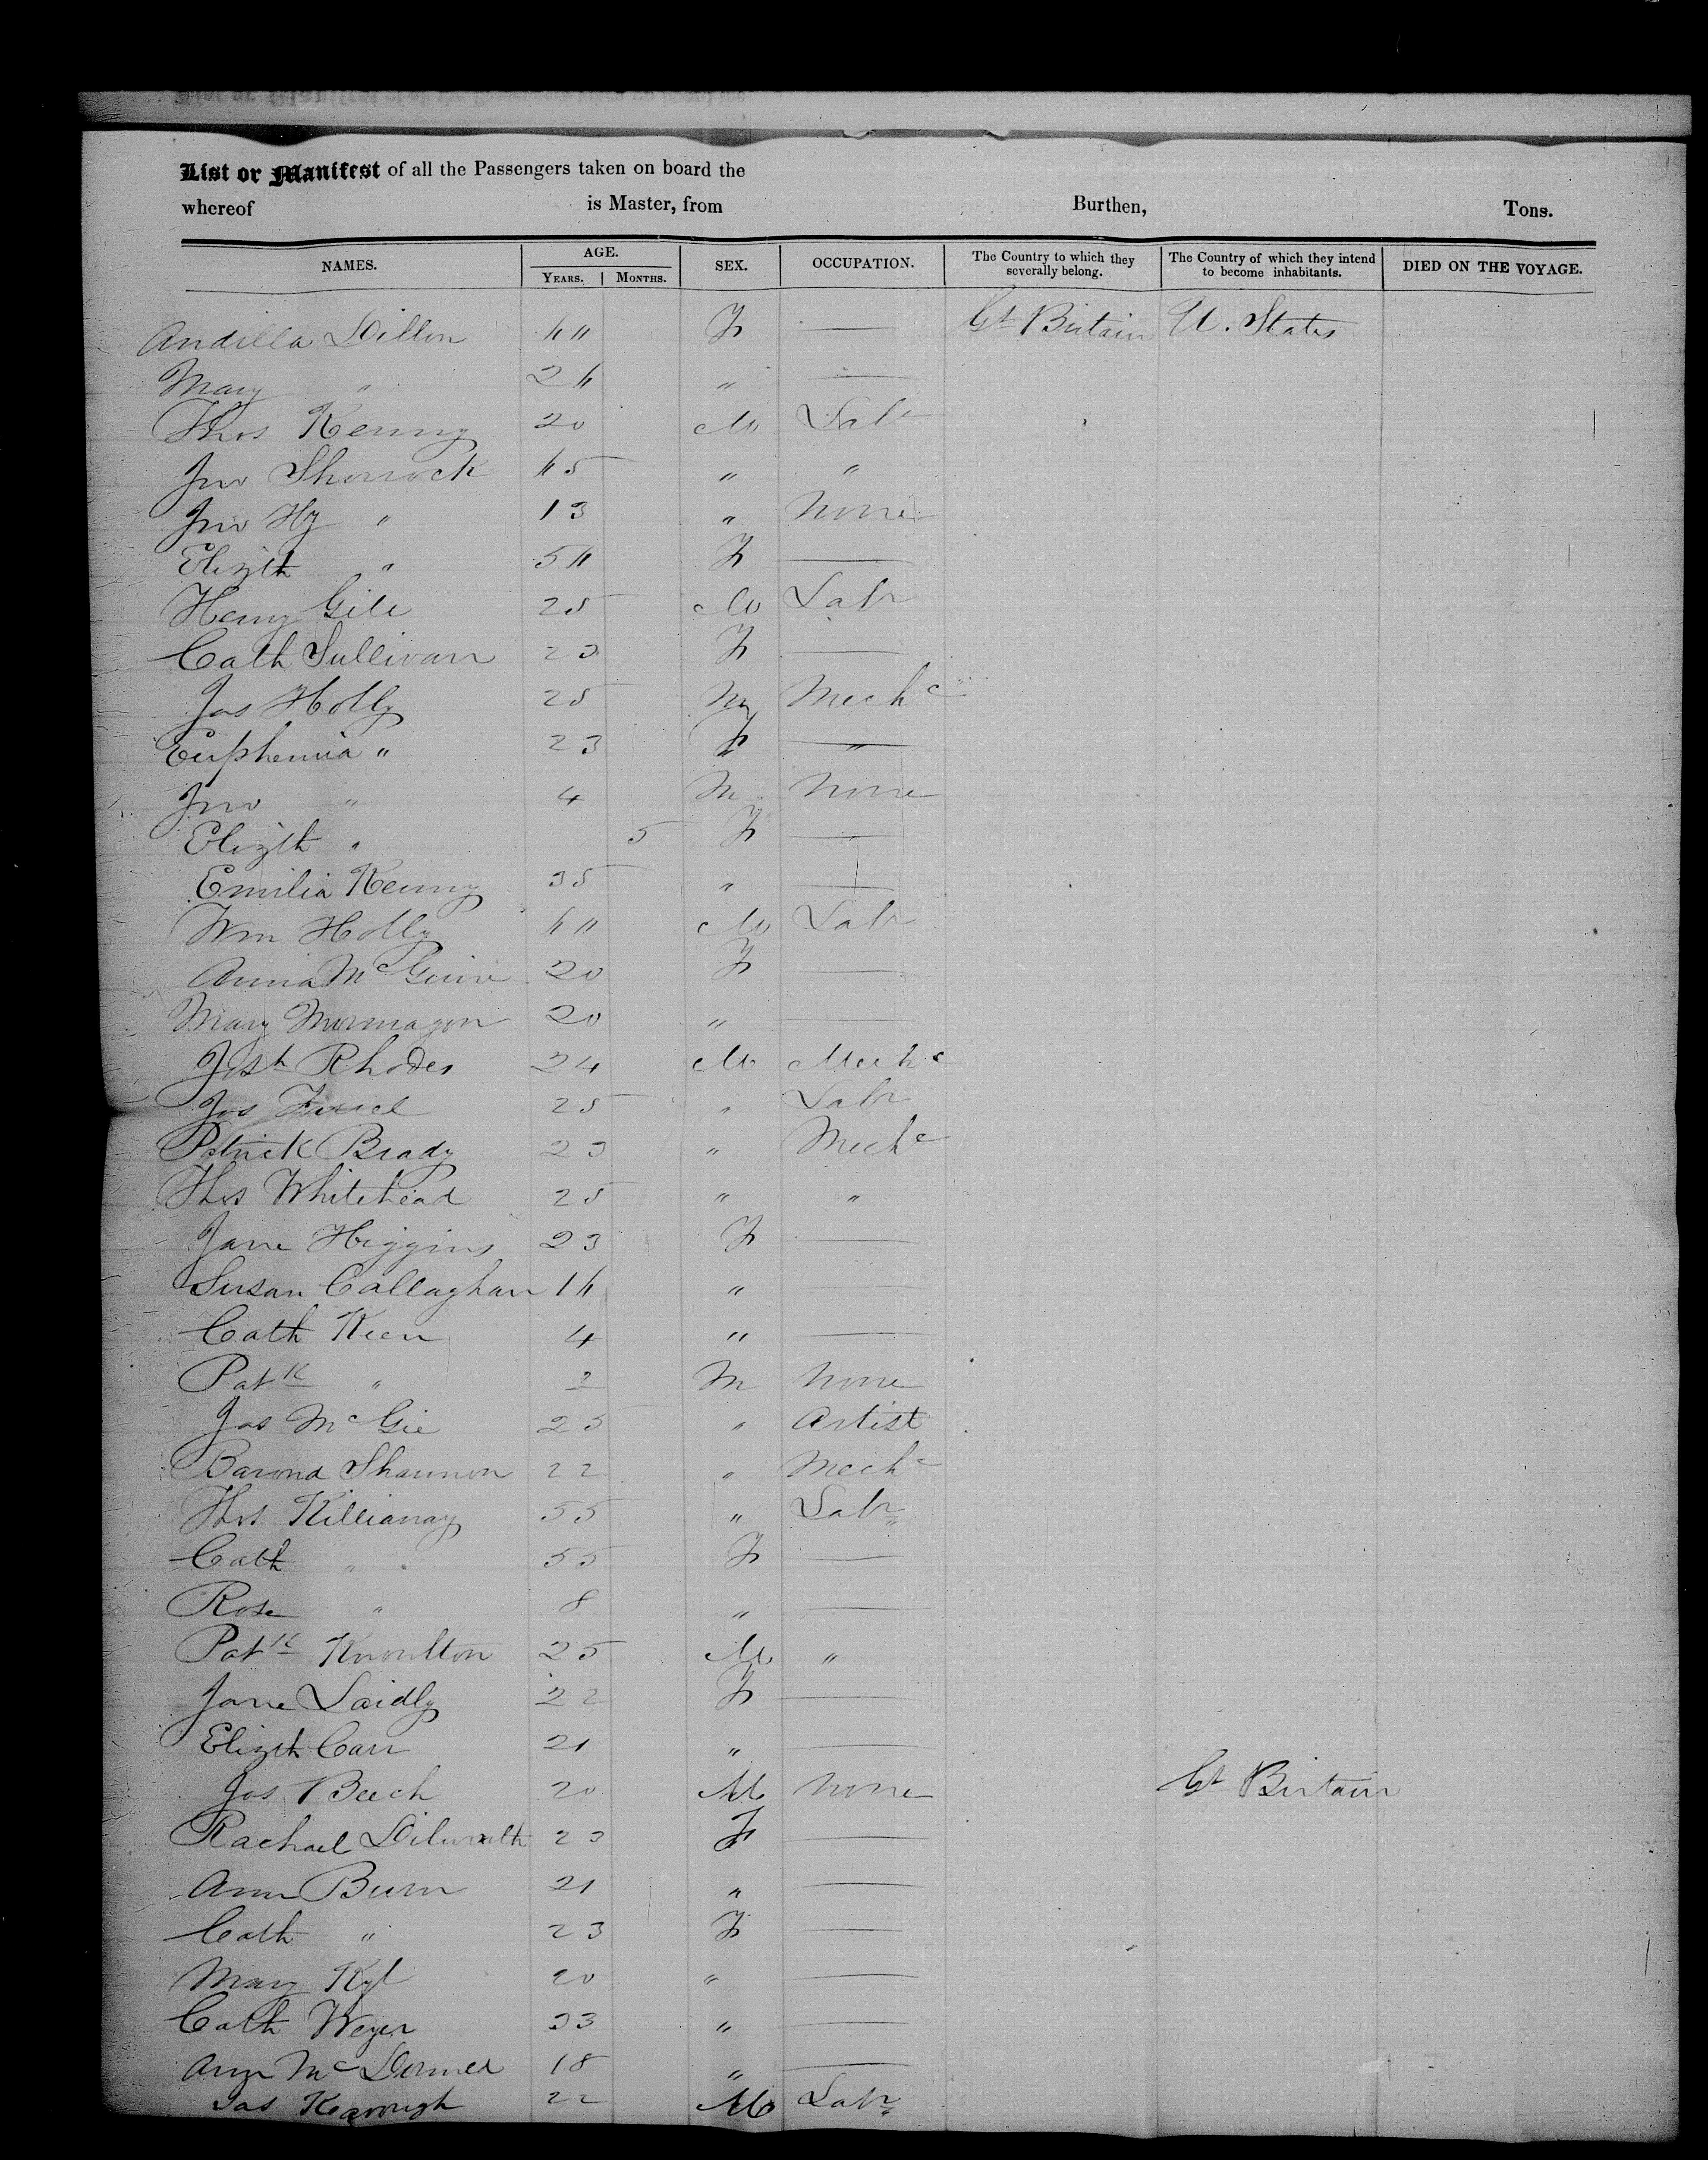 List or Manifest of all the Passengers taken on board the
whereof is Master, from Burthen, Tons.
NAMES. AGE. SEX. OCCUPATION. The Country to which they severally belong. The Country of which they intend to become inhabitants. DIED ON THE VOYAGE.
YEARS. MONTHS.
Dillon F — Gt Britain U. States
Mary " 24 " —
Thos Kenny 20 M Labr
Jno Shorrock 45 " "
Jno Hy " 13 " None
Elizth " 54 F —
Henry Gill 25 M Labr
Cath Sullivan 23 F —
Jas Holly 25 M Mechc
Euphemia " 23 F —
Jno " 4 M None
Elizth " 5 F —
Emilia Kenny 35 " —
Wm Holly 44 M Labr
Anna McGuire 20 F —
Mary 20 " —
Josh Rhodes 24 M Mechc
Jos 25 " Labr
Patrick Brady 23 " Mechc
Thos Whitehead 25 " "
Jane Higgins 23 F —
Susan Callaghan 14 " —
Cath Keen 4 " —
Patk " 2 M None
Jas McGie 25 " Artist
Shannon 22 " Mechc
Thos Killianay 55 " Labr
Cath " 55 F —
Rose " 8 " —
Patk Knoulton 25 M "
Jane Laidly 22 F —
Elizth Carr 21 " —
Jos Beech 20 M None Gt Britain
Rachael Dilworth 23 F —
Ann Burn 21 " —
Cath " 23 F —
Mary Kyl 20 " —
Cath Weyer 33 " —
Ann McDermed 18 " —
Jas Kearough 22 M Labr